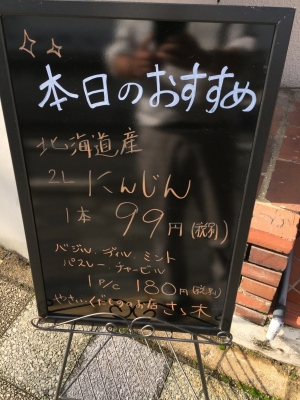 本日のおすすめ
北海道産
2L にんじん
1本 99円(税別)
バジル、ディル、ミント
パスレー、チャービル
1P/C 180円(税別)
やさいくだもの店 さゝ木